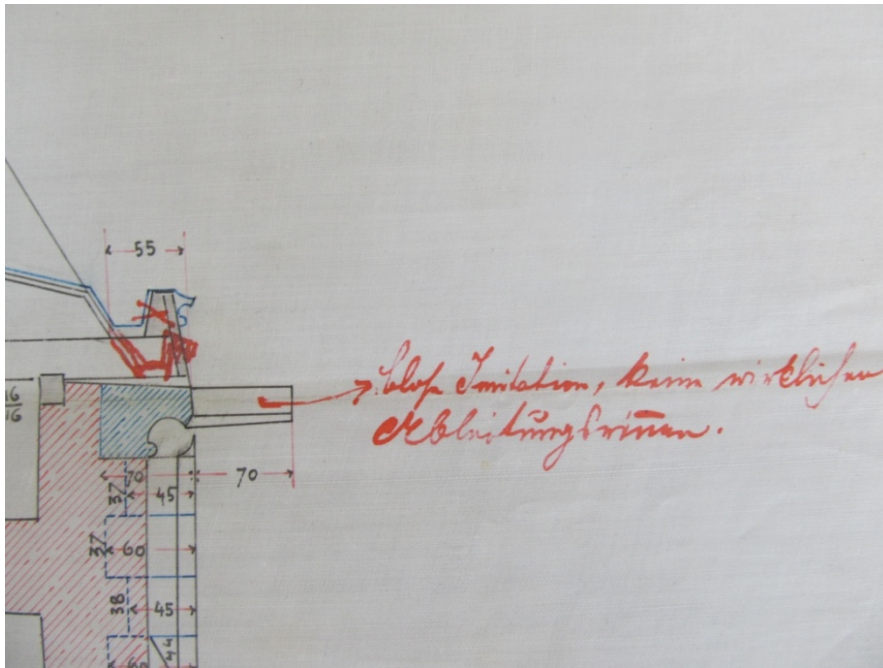 55
blose Imitation, keine wirklichen
Ableitungsrinnen.
16
16
70
70
37
45
37
60
38
45
44